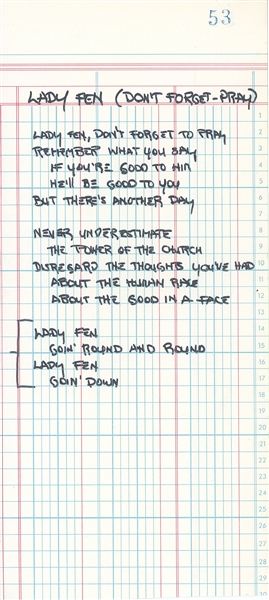 53
LADY FEN (DON'T FORGET-PRAY)
LADY FEN, DON'T FORGET TO PRAY
REMEMBER WHAT YOU SAY
IF YOU'RE GOOD TO HIM
HE'LL BE GOOD TO YOU
BUT THERE'S ANOTHER DAY
NEVER UNDERESTIMATE
THE POWER OF THE CHURCH
DISREGARD THE THOUGHTS YOU'VE HAD
ABOUT THE HUMAN RACE
ABOUT THE GOOD IN A FACE
LADY FEN
GOIN' ROUND AND ROUND
LADY FEN
GOIN' DOWN
1
2
3
4
5
6
7
8
9
10
11
12
13
14
15
16
17
18
19
20
21
22
23
24
25
26
27
28
29